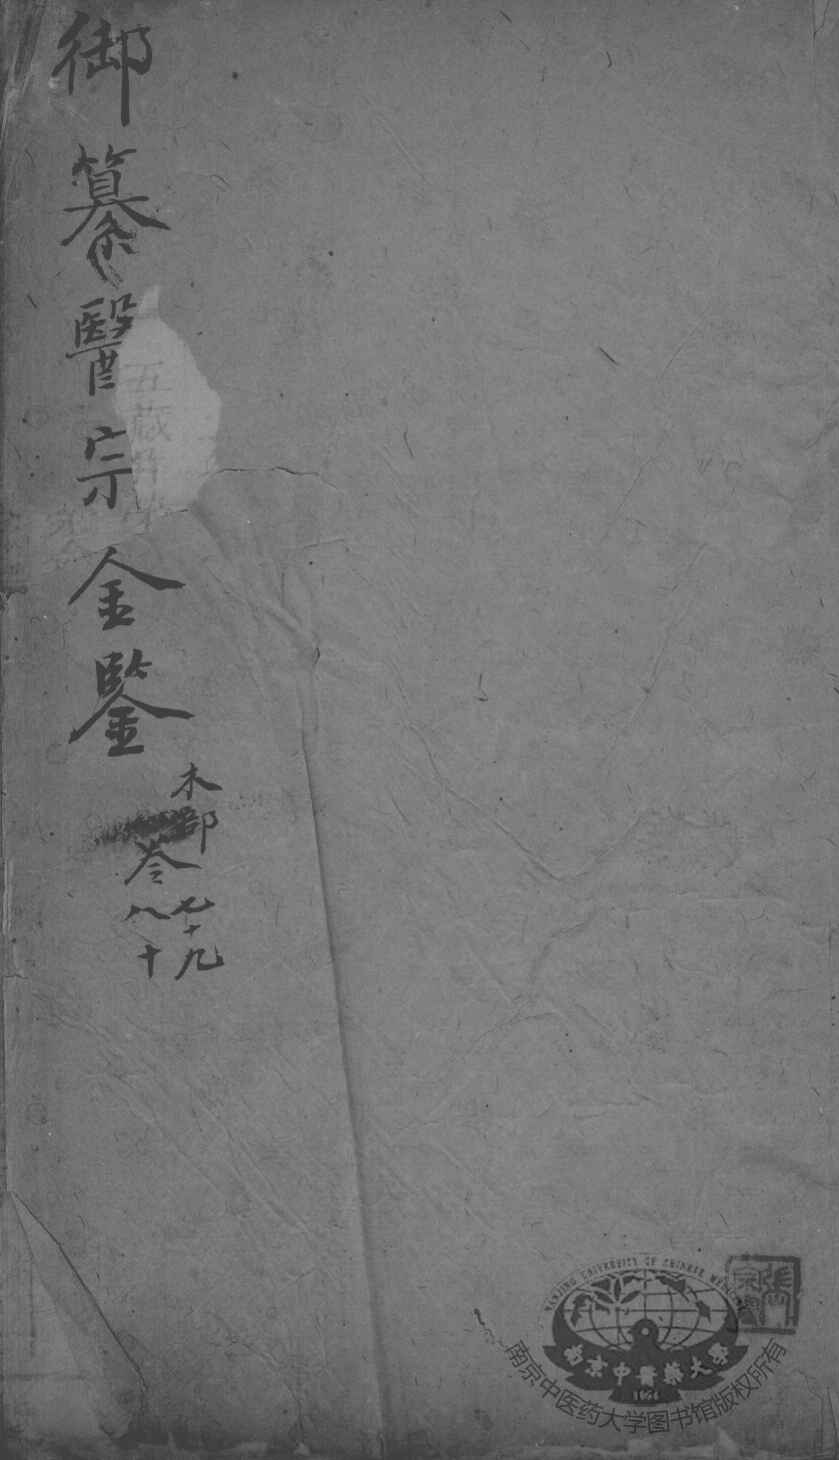 御纂醫宗金鑒
木部
卷
七十九
八十
五藏
NANJING UNIVERSITY OF CHINESE
南京中醫藥大學
1954
南京中医药大学图书馆版权所有